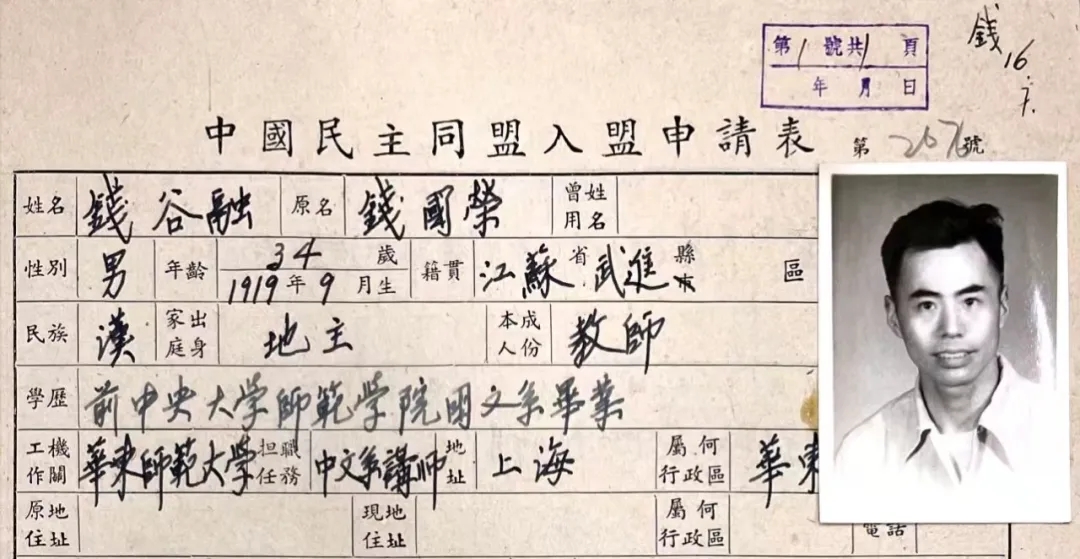 錢
16/7.
第1號共1頁
年月日
中國民主同盟入盟申請表 第267號
姓名 錢谷融 原名 錢國榮 曾用姓名
性別 男 年齡 34歲 1919年9月生 籍貫 江蘇省武進縣 區
民族 漢 家庭出身 地主 本人成份 教師
學歷 前中央大学師範学院国文系畢業
工作機關 華東師範大学 担任職務 中文系講師 地址 上海 屬何行政區 華東
原住地址 現住地址 屬何行政區 電話